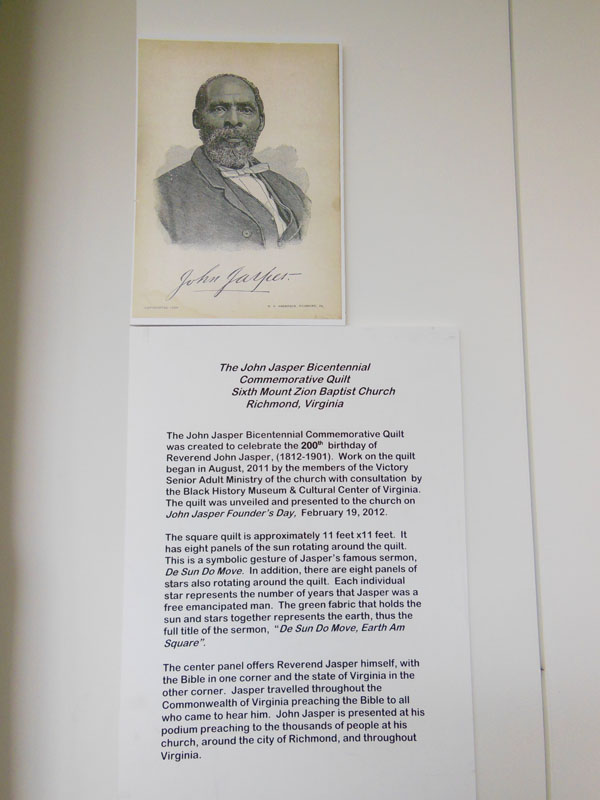 John Jasper.
The John Jasper Bicentennial
Commemorative Quilt
Sixth Mount Zion Baptist Church
Richmond, Virginia
The John Jasper Bicentennial Commemorative Quilt
was created to celebrate the 200th birthday of
Reverend John Jasper, (1812-1901). Work on the quilt
began in August, 2011 by the members of the Victory
Senior Adult Ministry of the church with consultation by
the Black History Museum & Cultural Center of Virginia.
The quilt was unveiled and presented to the church on
John Jasper Founder's Day, February 19, 2012.
The square quilt is approximately 11 feet x11 feet. It
has eight panels of the sun rotating around the quilt.
This is a symbolic gesture of Jasper's famous sermon,
De Sun Do Move. In addition, there are eight panels of
stars also rotating around the quilt. Each individual
star represents the number of years that Jasper was a
free emancipated man. The green fabric that holds the
sun and stars together represents the earth, thus the
full title of the sermon, "De Sun Do Move, Earth Am
Square".
The center panel offers Reverend Jasper himself, with
the Bible in one corner and the state of Virginia in the
other corner. Jasper travelled throughout the
Commonwealth of Virginia preaching the Bible to all
who came to hear him. John Jasper is presented at his
podium preaching to the thousands of people at his
church, around the city of Richmond, and throughout
Virginia.